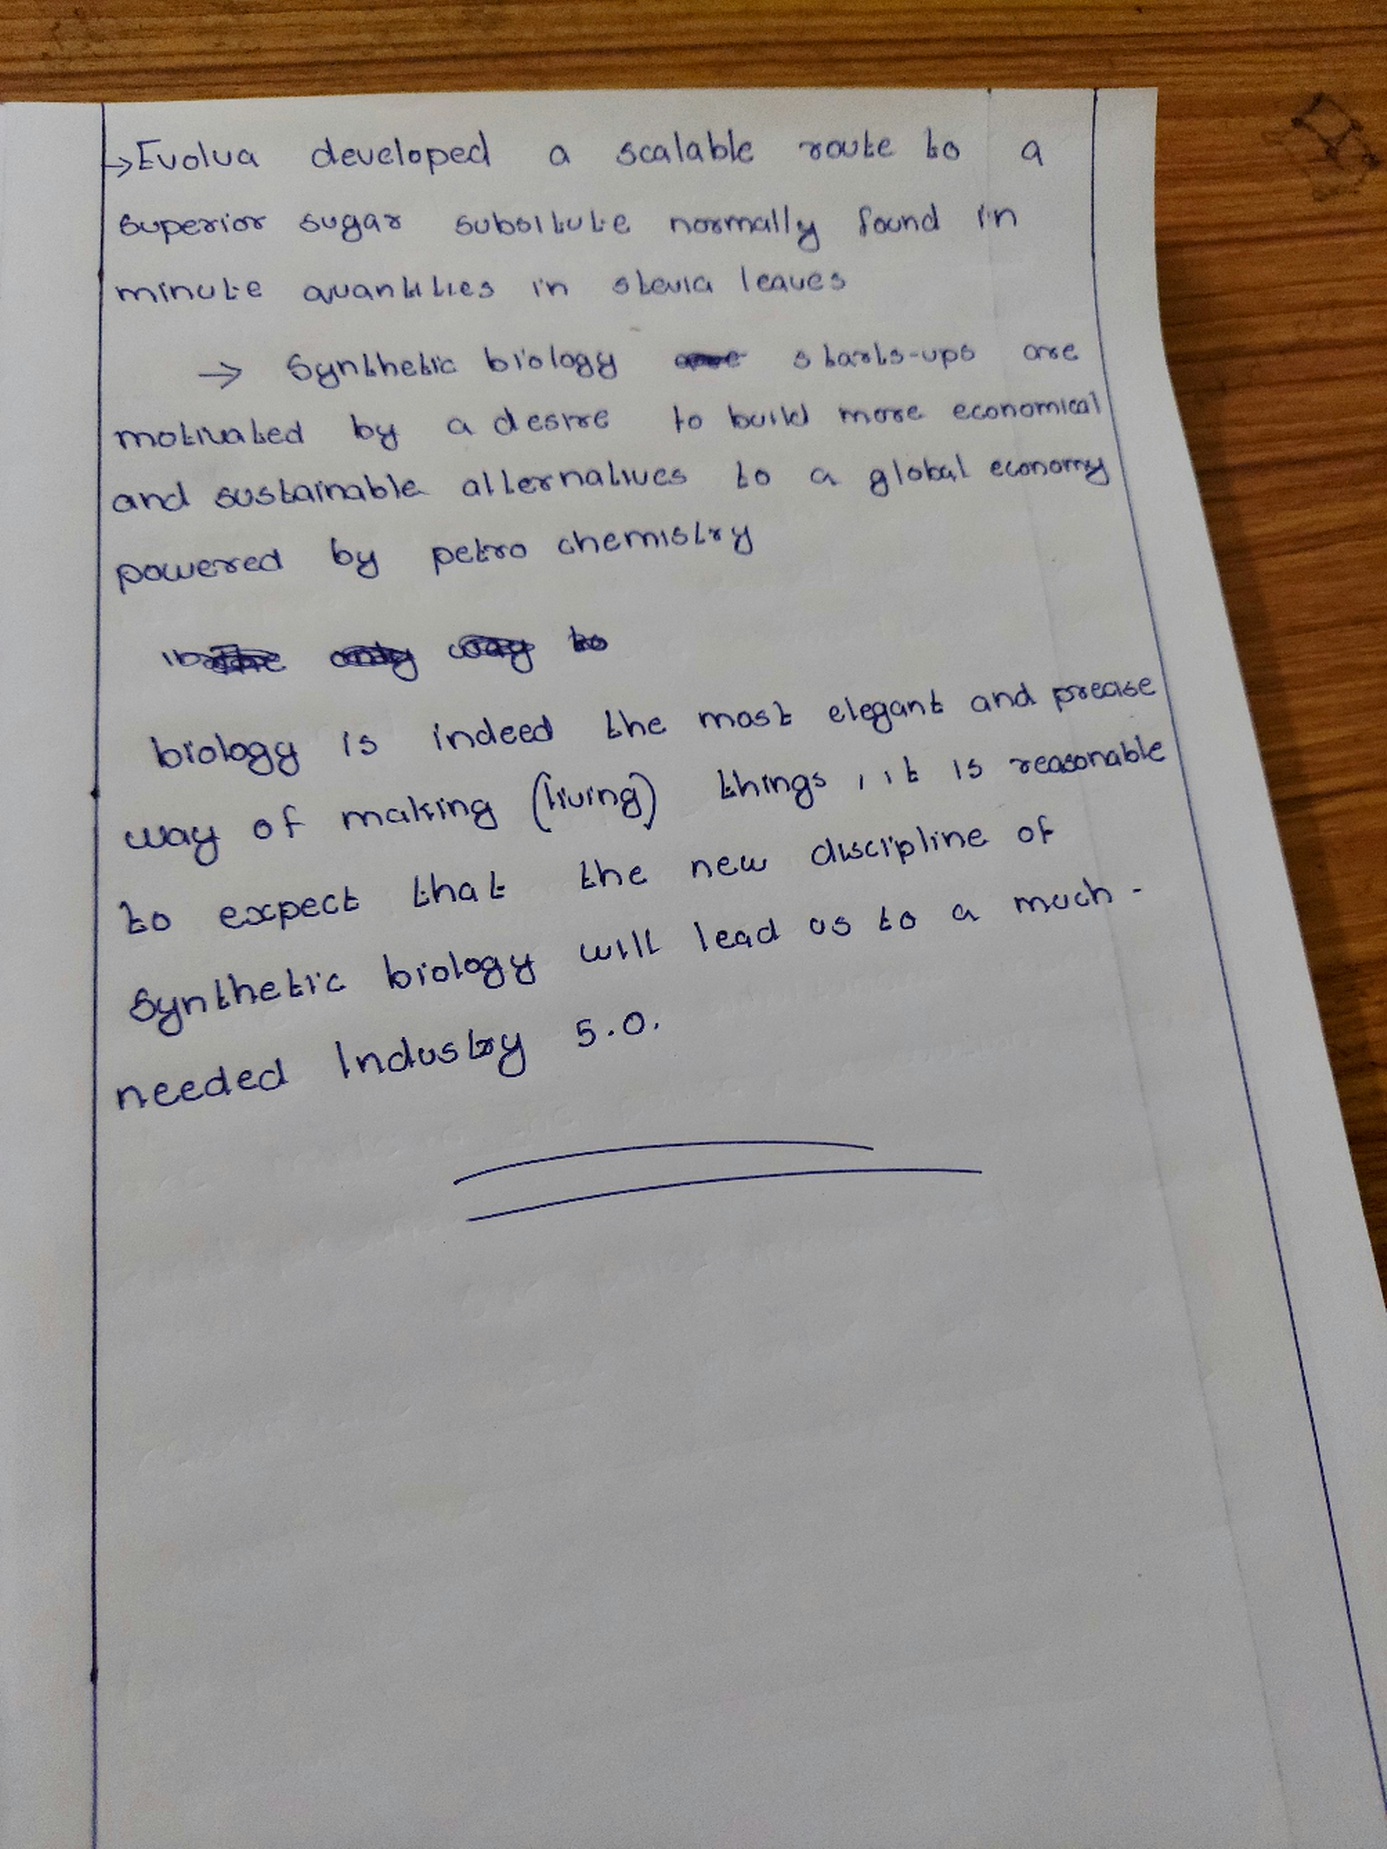 → Evolva developed a scalable route to a
superior sugar subsitute normally found in
minute quantities in stevia leaves
→ Synthetic biology starts-ups are
motivated by a desire to build more economical
and sustainable alternatives to a global economy
powered by petro chemistry
biology is indeed the most elegant and precise
way of making (living) things, it is reasonable
to expect that the new discipline of
Synthetic biology will lead us to a much-
needed Industry 5.0.